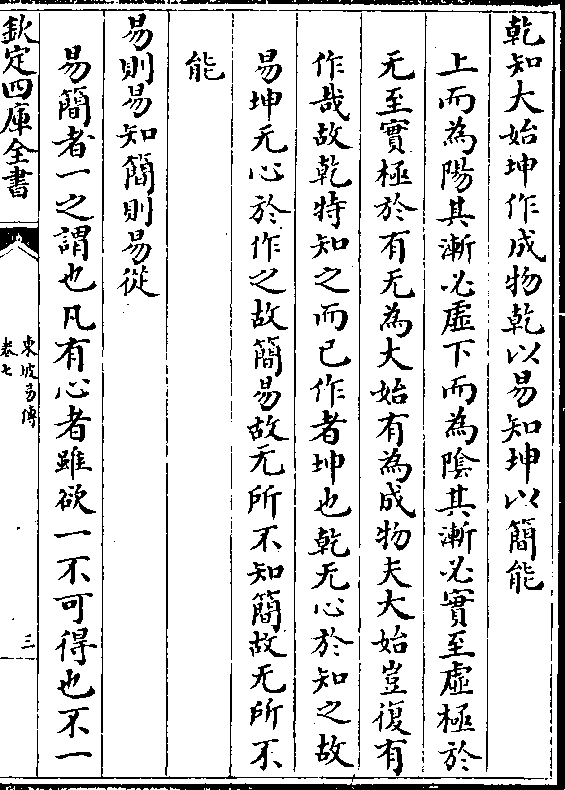 乾知大始坤作成物乾以易知坤以簡能
上而為陽其漸必虛下而為陰其漸必實至虛極於
无至實極於有无為大始有為成物夫大始豈復有
作哉故乾特知之而已作者坤也乾无心於知之故
易坤无心於作之故簡易故无所不知簡故无所不
能
易則易知簡則易從
易簡者一之謂也凡有心者雖欲一不可得也不一
欽定四庫全書
東坡易傳
卷七
三